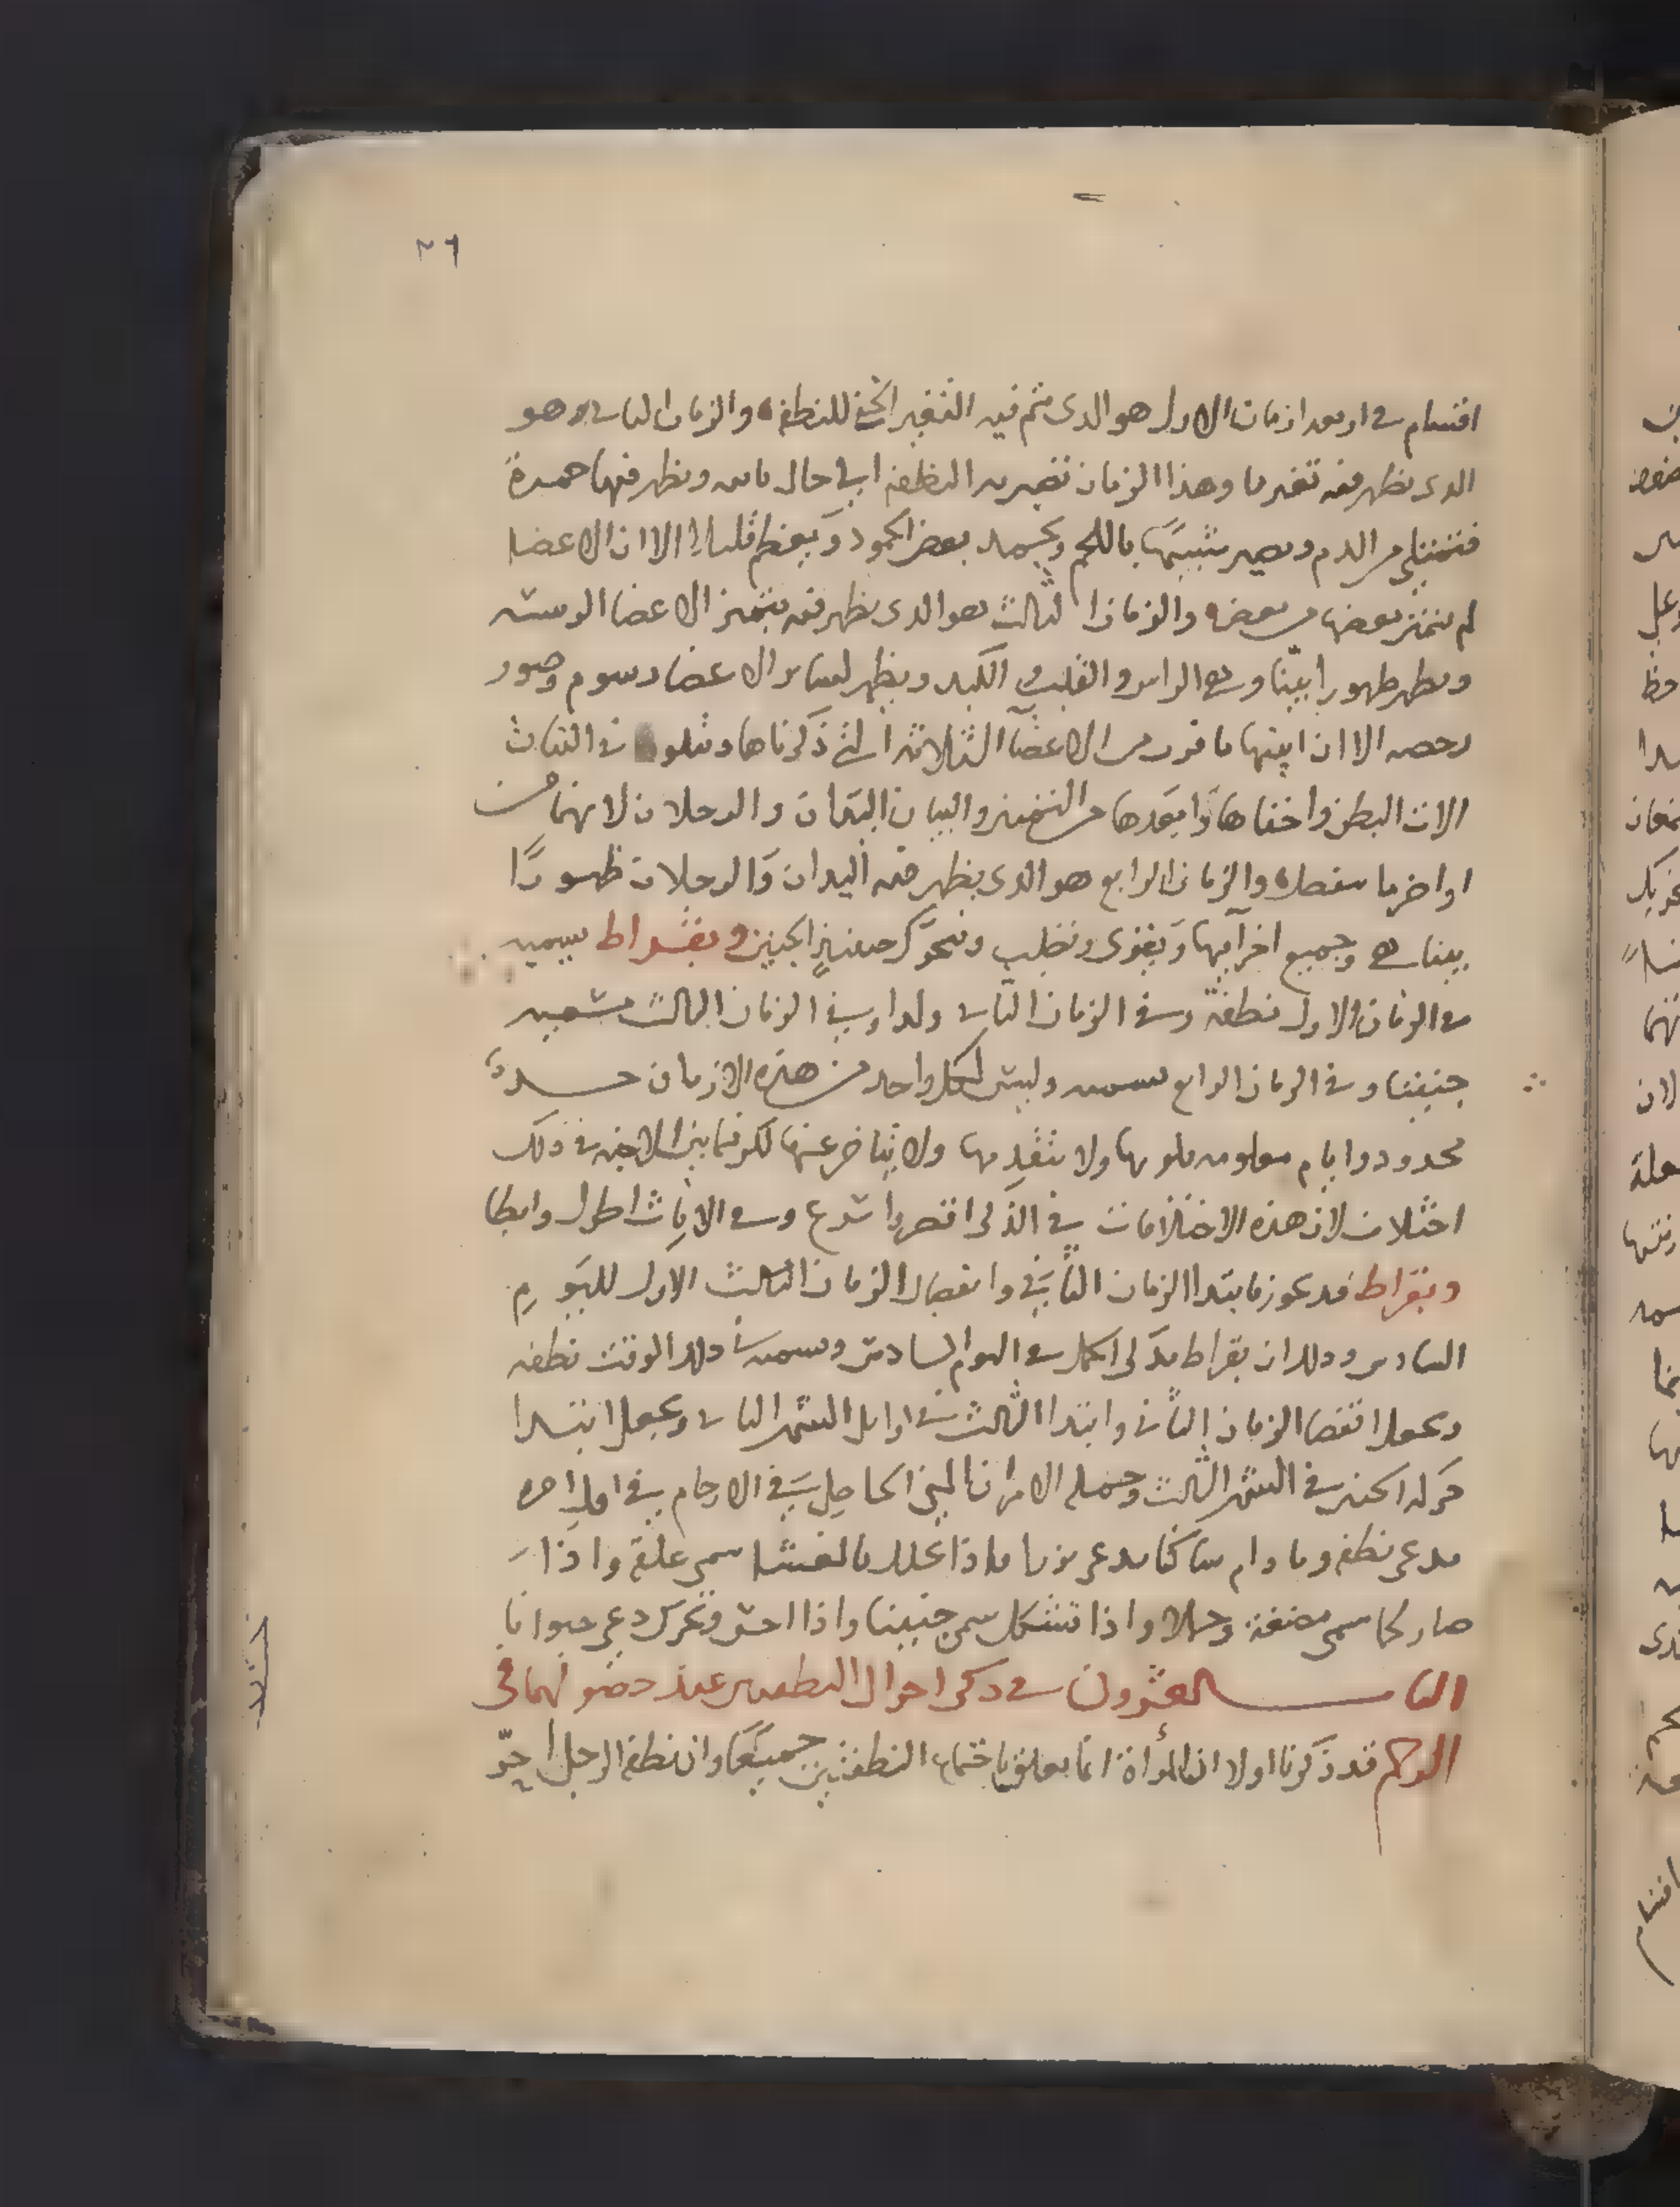 ٢٦
اقسام في اربعة ازمان الاول هو الدى يتم فيه التغير الخفي للنطفة والزمان الثانى هو
الدى يظهر فيه تغير ما وهذا الزمان تصير النطفة الى حال ما ويظهر فيها حمرة
فتمتلى من الدم ويصير شبيها باللحم ويجمد بعض الجمود ويعظم قليلا الا ان الاعضا
لم يتميز بعضها من بعض والزمان الثالث هو الدى يظهر فيه يتميز الاعضا الرئيسه
ويظهر ظهورا بينا وهي الراس والقلب والكبد ويظهر لساير الاعضا رسوم وصور
الا ان ابينها ما قرب من الاعضا الثلاثة التي ذكرناها ويتلوها في الثبات
الات البطن واخفاها وابعدها من والبيان اليدان والرجلان لانهما من
اواخر ما ينفصل والزمان الرابع هو الدى يظهر فيه اليدان والرجلان ظهورًا
بينا هي وجميع اجزايها ويقوى ويتحرك حينيذ الجنين وبقراط يسميه
في الزمان الاول نطفة وفي الزمان الثانى ولدا وفي الزمان الثالث يسميه
جنينا وفي الزمان الرابع وليس لكل واحد من هذه الازمان حد
محدود وايام معلومه ولا يتقدمها ولا يتاخر عنها لكن فيما بين الاجنه في ذلك
اختلاف لان هذه الاختلافات في الذكر اقصر واسرع وفي الاناث اطول وابطا
وبقراط قد ابتدا الزمان الثاني وانفصال الزمان الثالث الاول لليوم
السادس ودلك ان بقراط في اليوم السادس ويسميه في دلك الوقت نطفه
ويجعل انقضا الزمان الثاني وابتدا الثالث في اوايل الشهر الثاني ويجعل ابتدا
حركة الجنين في الشهر الثالث وجملة الامر ان المني الحاصل في الارحام في اول امره
يدعى نطفه وما دام ساكنا يدعى فاذا تجلل بالغشا سمى علقة واذا
صار لحما سمى مضغة واذا تشكل سمى جنينا واذا احس وتحرك دعي حيوانا
الباب العشرون في ذكر احوال النطفتين عند حصولهما في
الرحم قد ذكرنا اولا ان المرأة انما تعلق باجتماع النطفتين جميعا وان نطفة الرجل احرّ